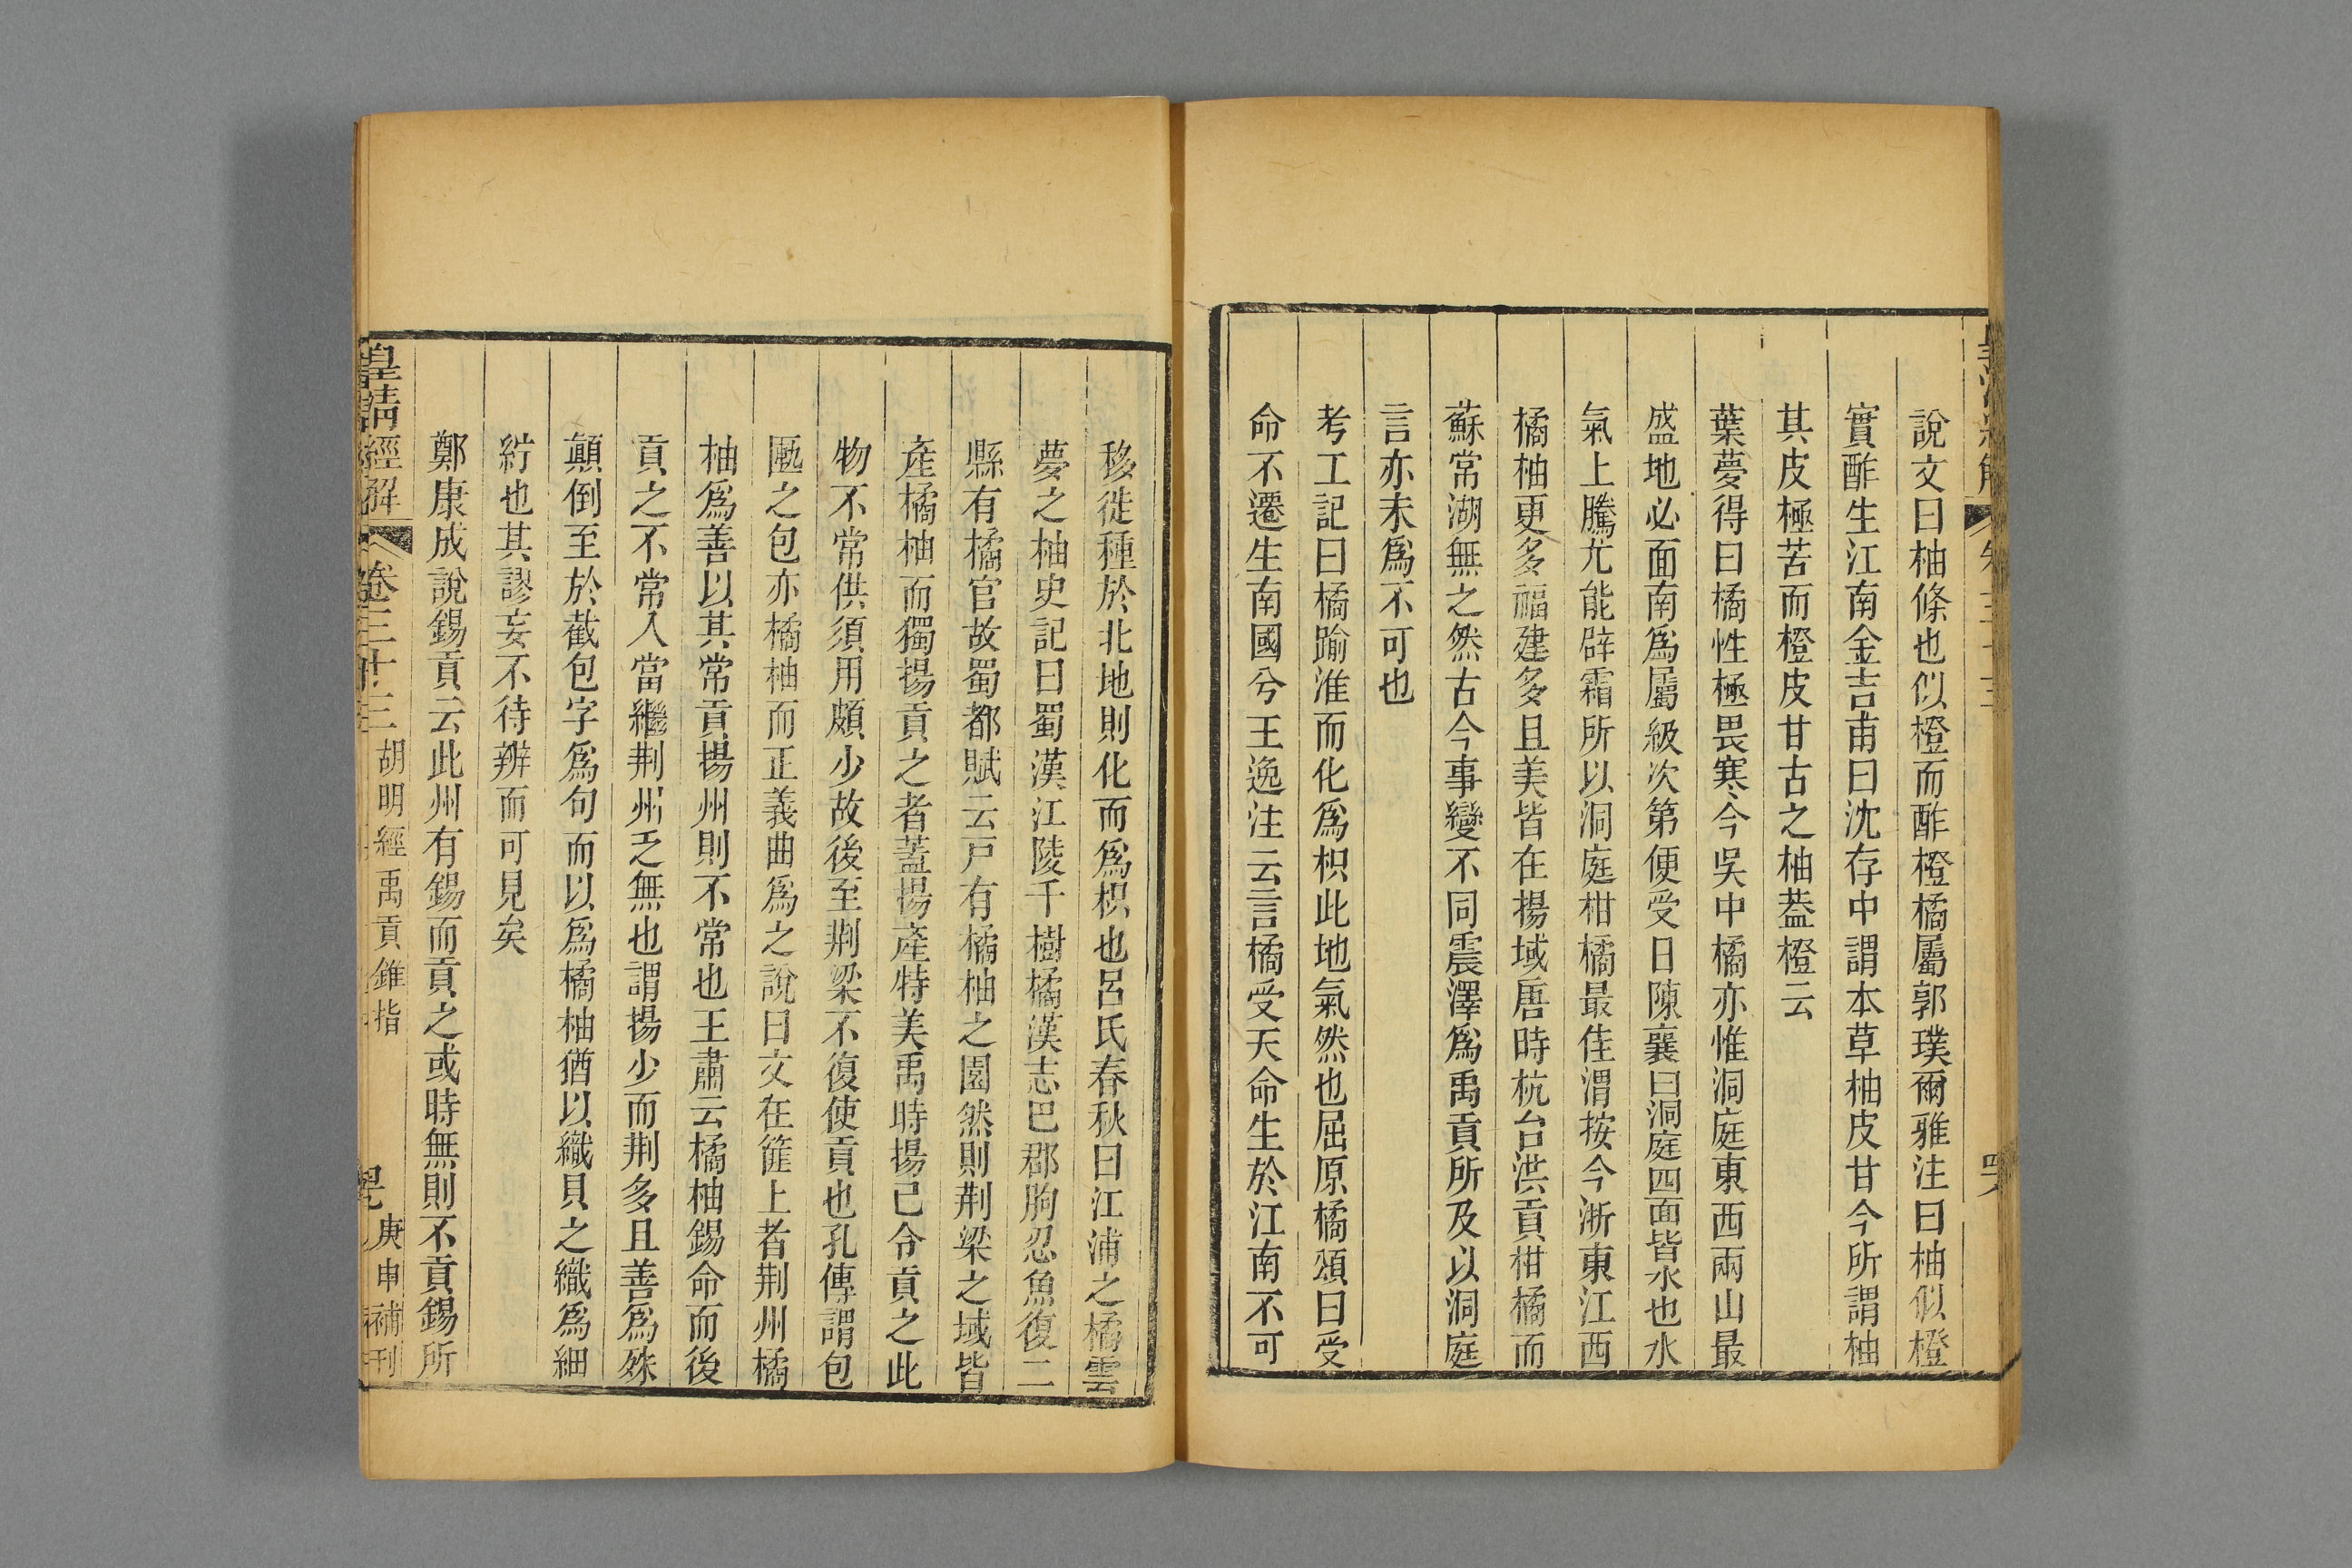 說文曰柚條也似橙而酢橙橘屬郭璞爾雅注曰柚似橙
實酢生江南金吉甫曰沈存中謂本草柚皮甘今所謂柚
其皮極苦而橙皮甘古之柚葢橙云
葉夢得曰橘性極畏寒今吳中橘亦惟洞庭東西兩山最
盛地必面南爲屬級次第便受日陳襄曰洞庭四面皆水也水
氣上騰尤能辟霜所以洞庭柑橘最佳渭按今浙東江西
橘柚更多福建多且美皆在揚域唐時杭台洪貢柑橘而
蘇常湖無之然古今事變不同震澤爲禹貢所及以洞庭
言亦未爲不可也
考工記曰橘踰淮而化爲枳此地氣然也屈原橘頌曰受
命不遷生南國兮王逸注云言橘受天命生於江南不可
移徙種於北地則化而爲枳也呂氏春秋曰江浦之橘雲
夢之柚史記曰蜀漢江陵千樹橘漢志巴郡朐忍魚復二
縣有橘官故蜀都賦云戸有橘柚之園然則荆梁之域皆
產橘柚而獨揚貢之者蓋揚產特美禹時揚已令貢之此
物不常供須用頗少故後至荆梁不復使貢也孔傳謂包
匭之包亦橘柚而正義曲爲之說曰文在篚上者荆州橘
柚爲善以其常貢揚州則不常也王肅云橘柚錫命而後
貢之不常入當繼荆州乏無也謂揚少而荆多且善爲殊
顚倒至於截包字爲句而以爲橘柚猶以織貝之織爲細
紵也其謬妄不待辨而可見矣
鄭康成說錫貢云此州有錫而貢之或時無則不貢錫所
皇清經解
卷三十三
胡明經禹貢錐指
庚申補刊